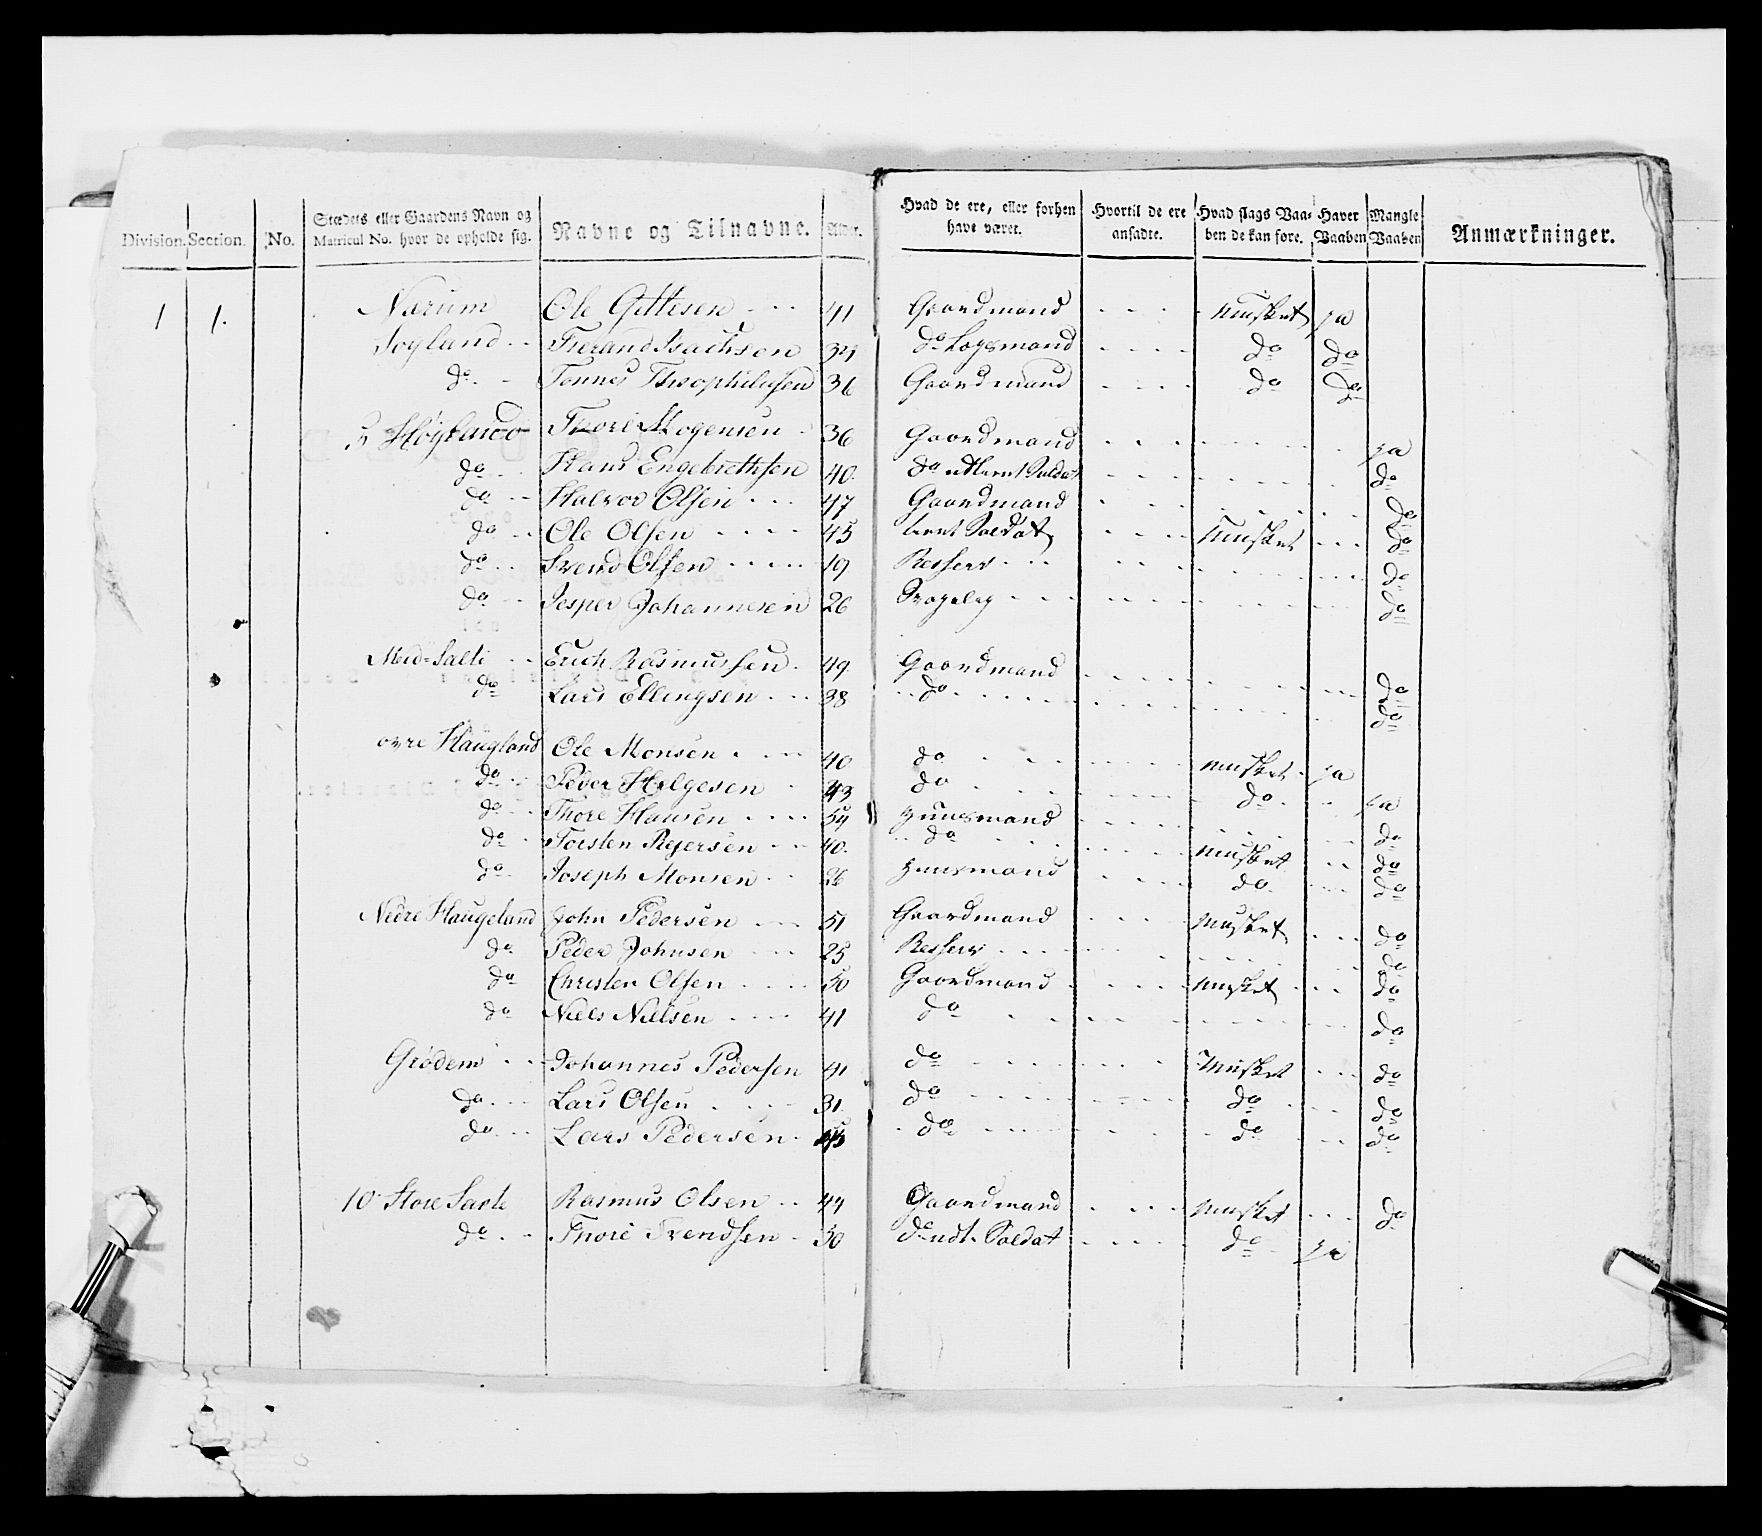 Division. Section. No. Stædets eller Gaardens Navn og Matricul No. hvor de opholde sig. Navne og Tilnavne. Alder. Hvad de ere, eller forhen have været. Hvortil de ere ansadte. Hvad slags Vaaben de kan føre. Haver Vaaben Mangle Vaaben Anmærkninger.
1 1. Nærum Ole Gittesen 41 Gaardmand Musket ja
Joyland Tierand Isachsen 34 do Logsmand do do
do Tønnes Theophilusen 36 Gaardmand do do
Høyland Thore Mogensen 36 Gaardmand ja
do Hans Engebrethsen 40. do udtient Soldat do
do Halvor Olsen 47 Gaardmand do
do Ole Olsen 45 tient Soldat Musket do
do Svend Olsen 19 Resserv do
do Jesper Johannesen 26 do
Mid-Salte Erich Rasmussen 49. Gaardmand do
do Lars Ellingsen 38 do do
øvre Haugland Ole Monsen 40 do Musket ja
do Peder Helgesen 43 do do ja
do Thore Hansen 54 Huusmand do
do Torsten Rejersen 40. do Musket do
do Joseph Monsen 26 Huusmand do do
Nedre Haugeland John Pedersen 51 Gaardmand Musket do
do Peder Johnsen 25 Resserv do
do Christen Olsen 50 Gaardmand Musket do
do Niels Nielsen 41 do do
Grødem Johannes Pedersen 41 do Musket do
do Lars Olsen 31. do do do
do Lars Pedersen do do do
10 Store Salte Rasmus Olsen 44 Gaardmand Musket do
do Thore Svendsen 30 do udt. Soldat do ja